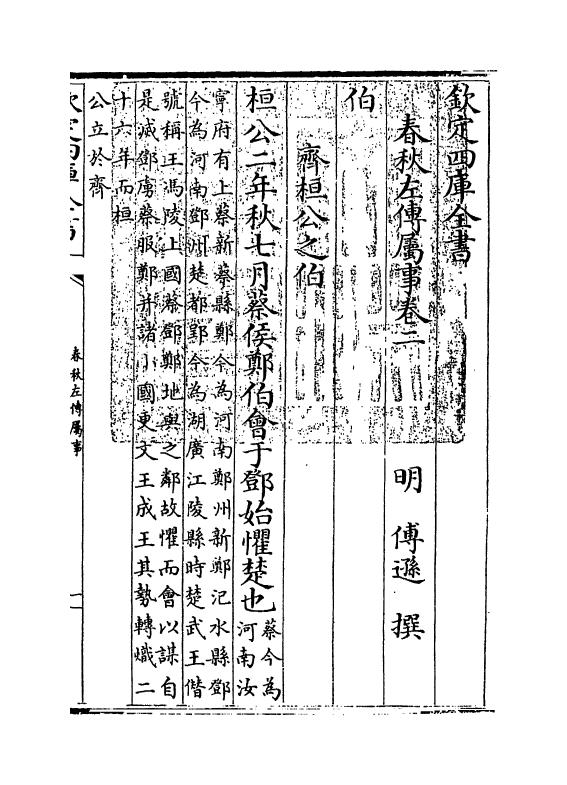 欽定四庫全書
春秋左傳屬事卷二　明　傅遜　撰
伯
齊桓公之伯
桓公二年秋七月蔡侯鄭伯會于鄧始懼楚也
蔡今為
河南汝
寧府有上蔡新蔡縣鄭今為河南鄭州新鄭氾水縣鄧
今為河南鄧州楚都郢今為湖廣江陵縣時楚武王僭
號稱王馮陵上國蔡鄧鄭地與之鄰故懼而會以謀自
是滅鄧虜蔡服鄭并諸小國東文王成王其勢轉熾二
十六年而桓
公立於齊
春秋左傳屬事